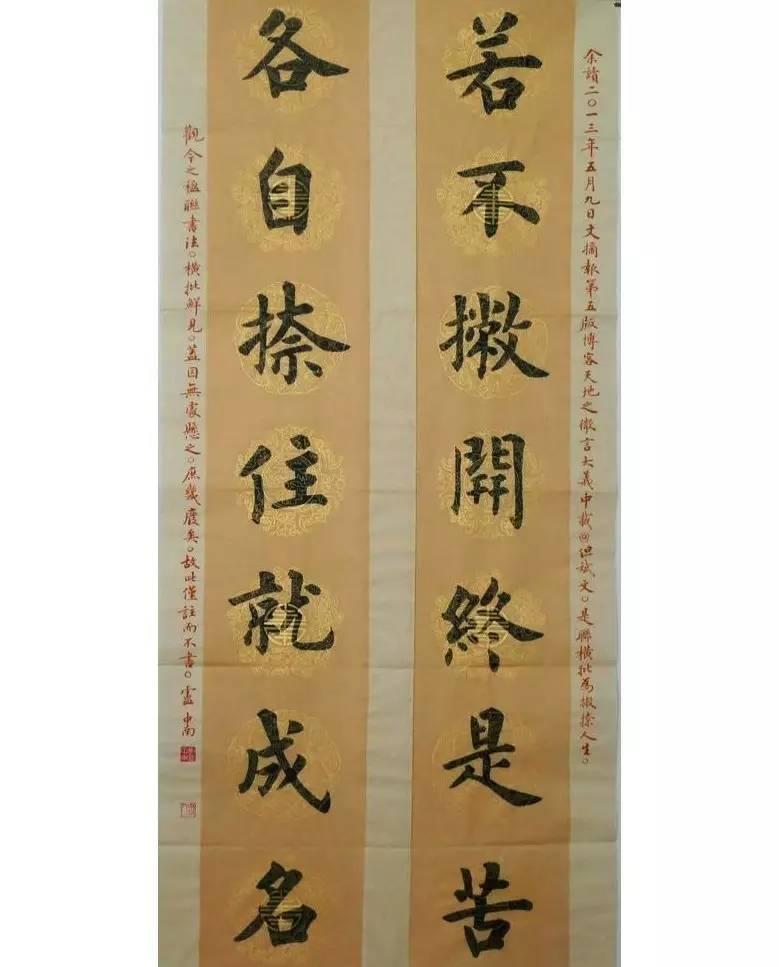 余讀二〇一三年五月九日文摘報第五版博客天地之微言大義中載但斌文。是聯橫批為撇捺人生。
若不撇開終是苦
各自捺住就成名
觀今之楹聯書法。橫批鮮見。蓋因無處懸之。庶幾廢矣。故此僅註而不書。盧中南